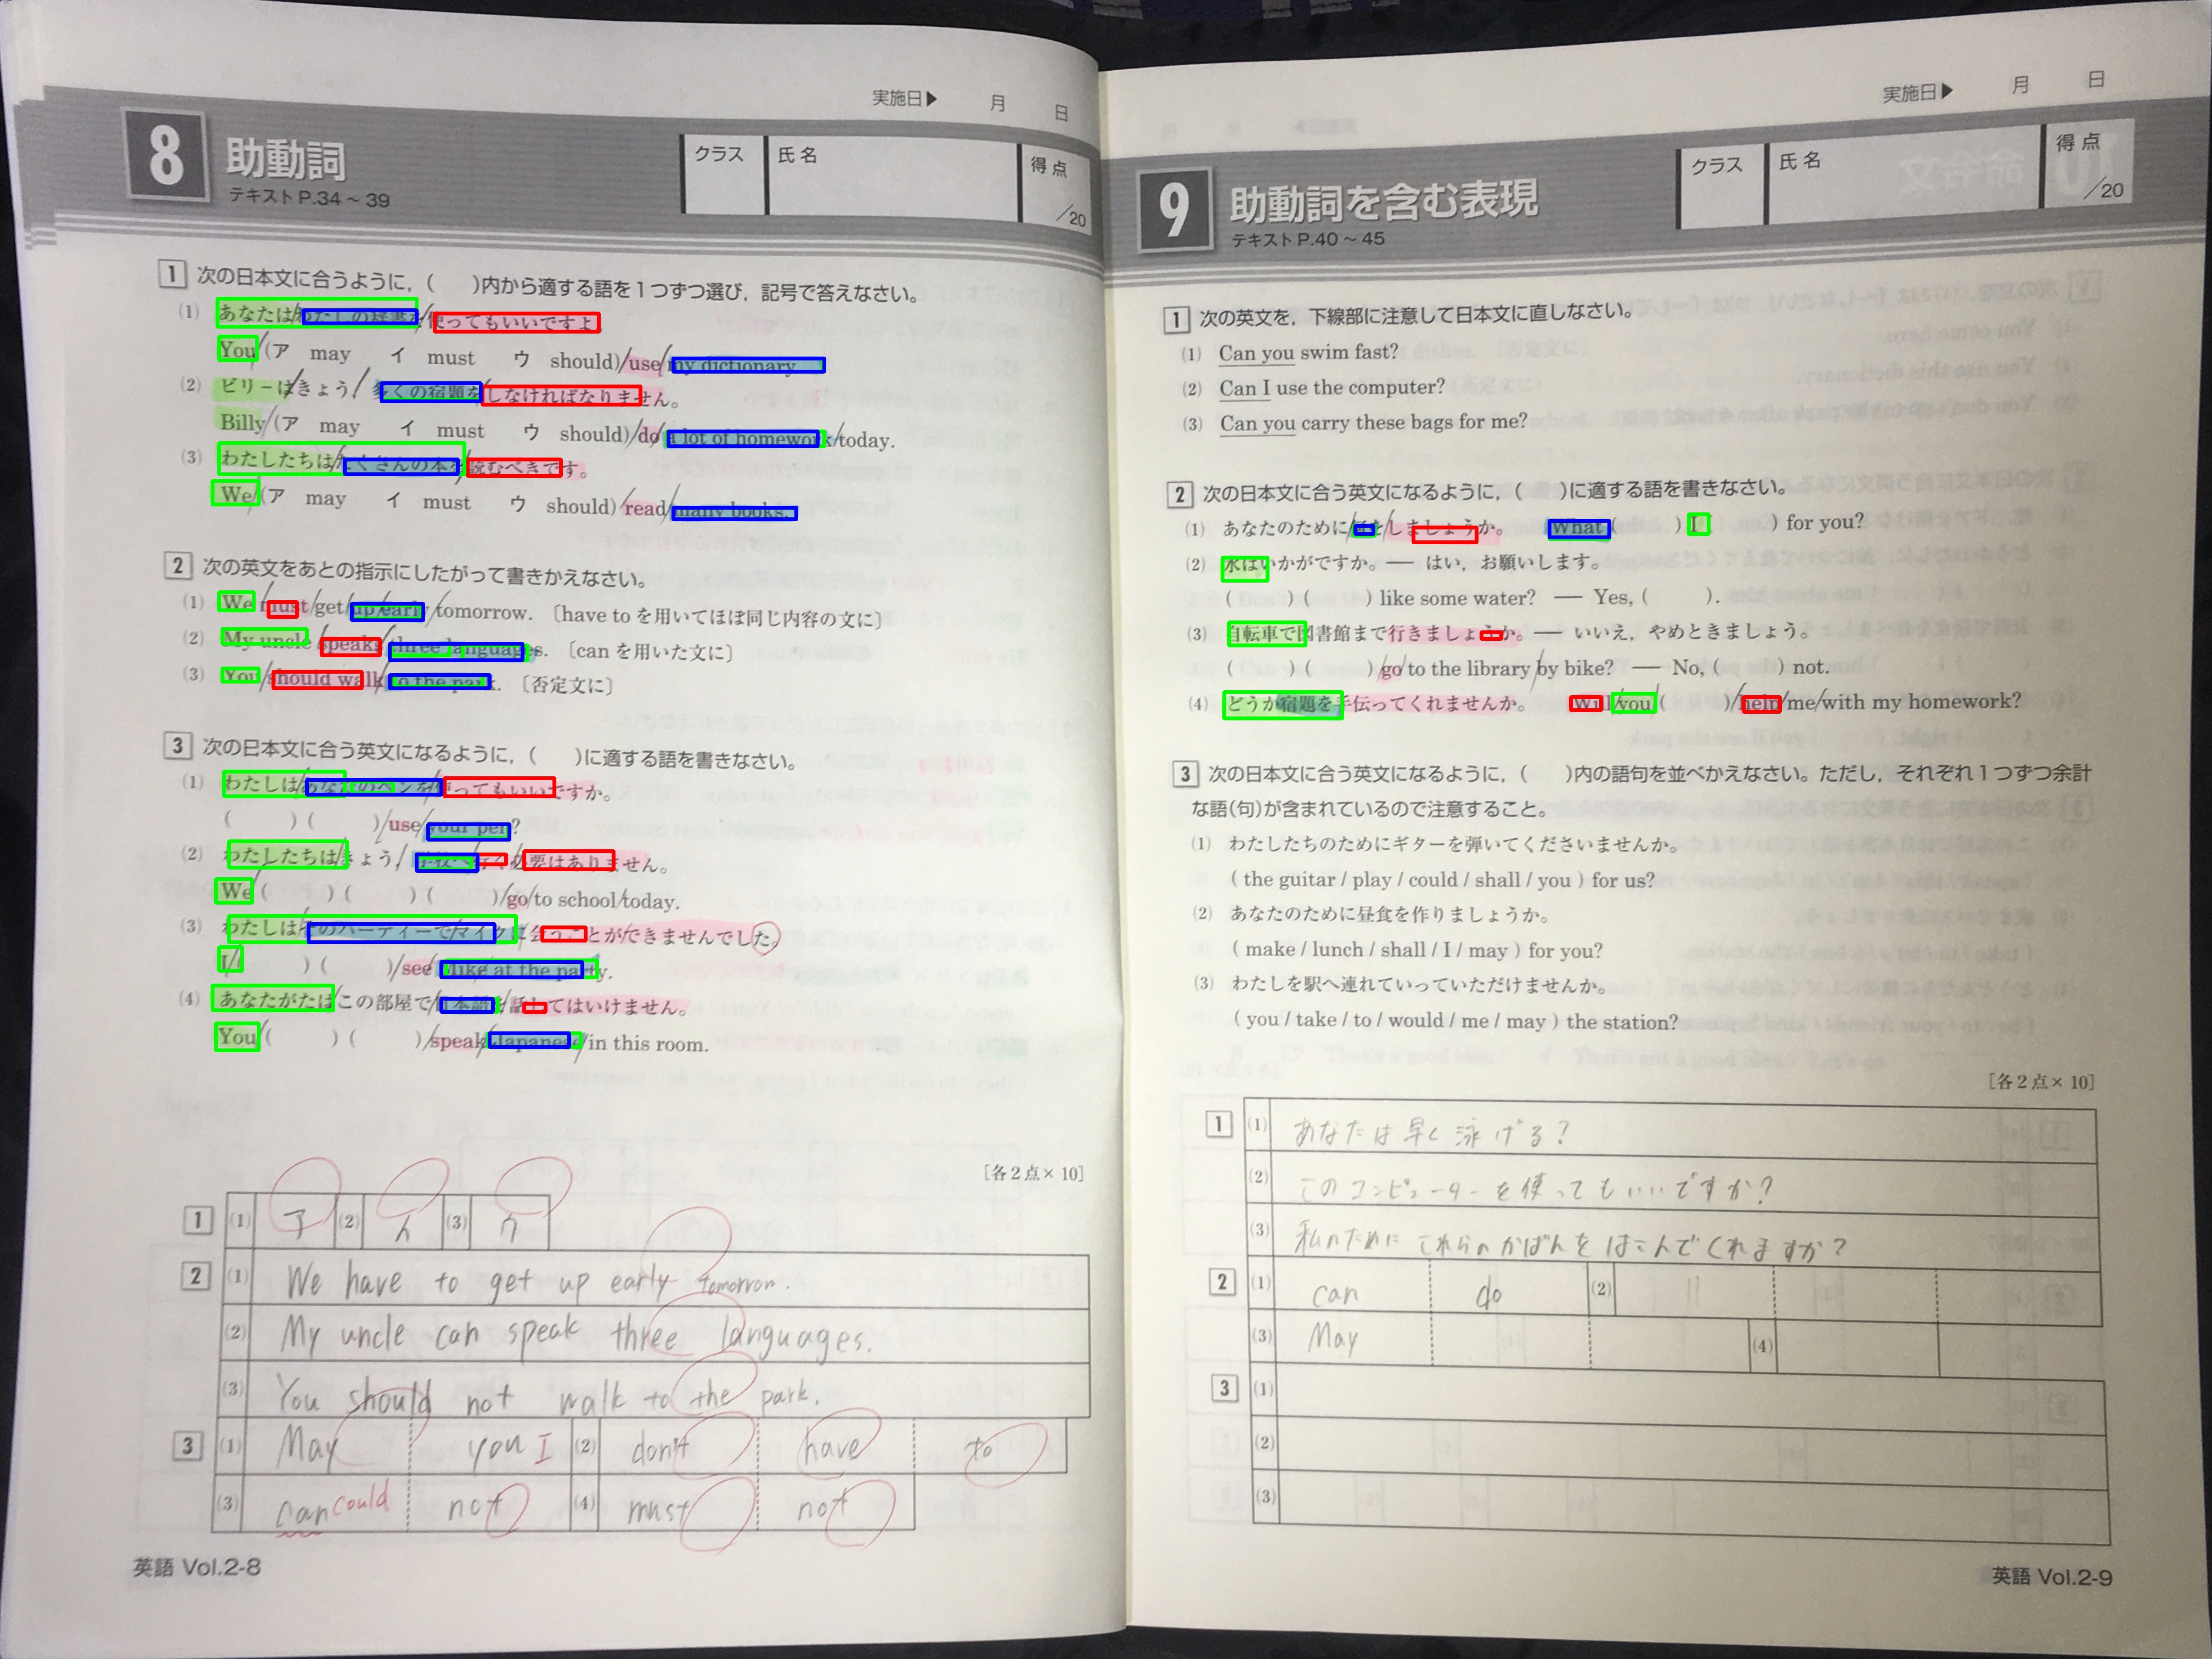 実施日▶ 月 日
8 助動詞
テキストP.34～39
クラス 氏名 得点 /20
1 次の日本文に合うように，( )内から適する語を1つずつ選び，記号で答えなさい。
(1) あなたは/わたしの辞書を/使ってもいいですよ
You/(ア may イ must ウ should)/use/my dictionary.
(2) ビリーは/きょう/多くの宿題を/しなければなりません。
Billy/(ア may イ must ウ should)/do/a lot of homework/today.
(3) わたしたちは/たくさんの本を/読むべきです。
We/(ア may イ must ウ should)/read/many books.
2 次の英文をあとの指示にしたがって書きかえなさい。
(1) We/must/get/up/early/tomorrow. 〔have toを用いてほぼ同じ内容の文に〕
(2) My uncle/speaks/three languages. 〔canを用いた文に〕
(3) You/should walk/to the park. 〔否定文に〕
3 次の日本文に合う英文になるように，( )に適する語を書きなさい。
(1) わたしは/あなたのペンを/使ってもいいですか。
( ) ( )/use/your pen?
(2) わたしたちは/きょう/学校へ/行く/必要はありません。
We ( ) ( ) ( )/go/to school/today.
(3) わたしは/そのパーティーで/マイクに/会うことが/できませんでした。
I/( ) ( )/see/Mike at the party.
(4) あなたがたは/この部屋で/日本語を/話してはいけません。
You/( ) ( )/speak/Japanese/in this room.
[各2点×10]
1 (1) ア (2) イ (3) ウ
2 (1) We have to get up early tomorrow.
(2) My uncle can speak three languages.
(3) You should not walk to the park.
3 (1) May you I (2) don't have to
(3) can could not (4) must not
英語 Vol.2-8
実施日▶ 月 日
9 助動詞を含む表現
テキストP.40～45
クラス 氏名 得点 /20
1 次の英文を，下線部に注意して日本文に直しなさい。
(1) Can you swim fast?
(2) Can I use the computer?
(3) Can you carry these bags for me?
2 次の日本文に合う英文になるように，( )に適する語を書きなさい。
(1) あなたのために/何を/しましょうか。 What ( ) I ( ) for you?
(2) 水はいかがですか。― はい，お願いします。
( ) ( ) like some water? ― Yes, ( ).
(3) 自転車で図書館まで行きましょうか。― いいえ，やめときましょう。
( ) ( )/go/to the library/by bike? ― No, ( ) not.
(4) どうか宿題を手伝ってくれませんか。 Will/you/( )/help/me/with my homework?
3 次の日本文に合う英文になるように，( )内の語句を並べかえなさい。ただし，それぞれ1つずつ余計
な語(句)が含まれているので注意すること。
(1) わたしたちのためにギターを弾いてくださいませんか。
( the guitar / play / could / shall / you ) for us?
(2) あなたのために昼食を作りましょうか。
( make / lunch / shall / I / may ) for you?
(3) わたしを駅へ連れていっていただけませんか。
( you / take / to / would / me / may ) the station?
[各2点×10]
1 (1) あなたは早く泳げる？
(2) このコンピューターを使ってもいいですか？
(3) 私のためにこれらのかばんをはこんでくれますか？
2 (1) can do (2)
(3) May (4)
3 (1)
(2)
(3)
英語 Vol.2-9